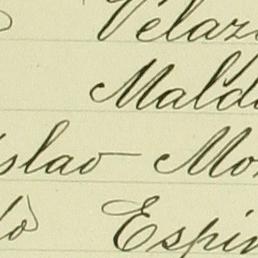 Velaz
Mald
slao Mo
Espin